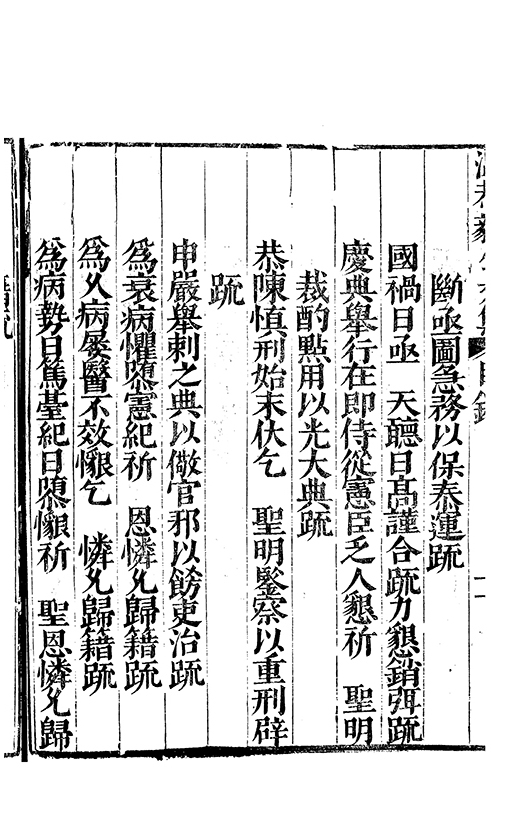 溫恭毅公文集 目錄 十一
斷亟圖急務以保泰運疏
國禍日亟　天聽日高謹合疏力懇銷弭疏
慶典舉行在即侍從憲臣乏人懇祈　聖明
裁酌點用以光大典疏
恭陳慎刑始末伏乞　聖明鑒察以重刑辟
疏
申嚴舉刺之典以儆官邪以飭吏治疏
為衰病懼隳憲紀祈　恩憐允歸籍疏
為久病屢醫不效懇乞　憐允歸籍疏
為病勢日篤臺紀日隳懇祈　聖恩憐允歸